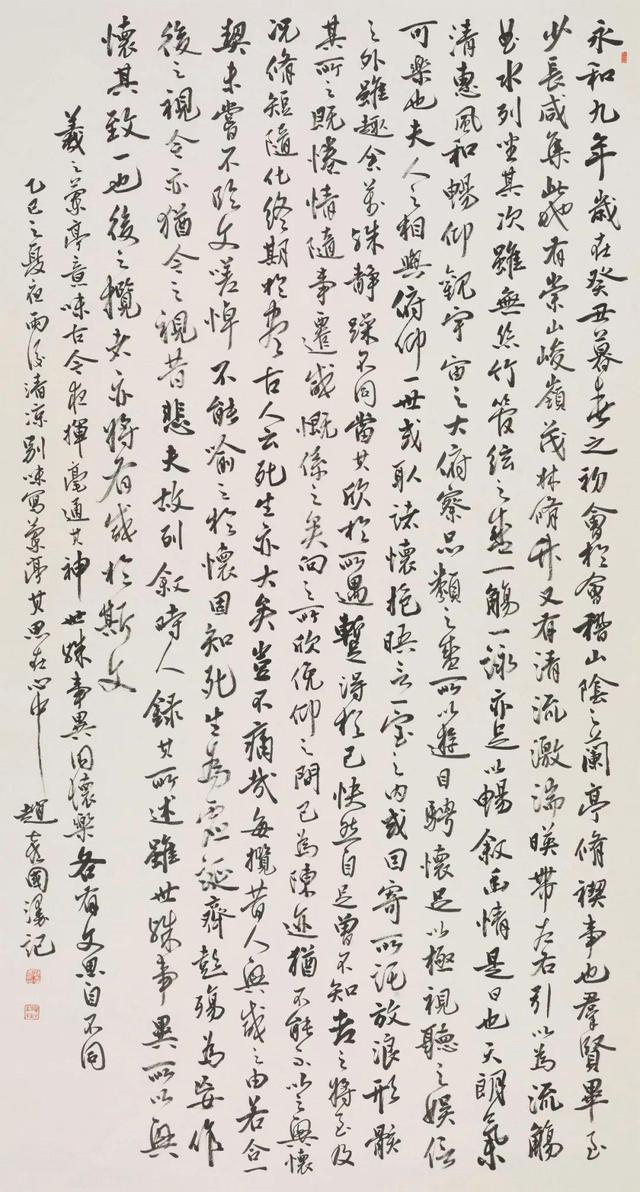 永和九年歲在癸丑暮春之初會於會稽山陰之蘭亭脩禊事也羣賢畢至
少長咸集此地有崇山峻嶺茂林脩竹又有清流激湍暎帶左右引以為流觴
曲水列坐其次雖無絲竹管絃之盛一觴一詠亦足以暢敘幽情是日也天朗氣
清惠風和暢仰觀宇宙之大俯察品類之盛所以遊目騁懷足以極視聽之娛信
可樂也夫人之相與俯仰一世或取諸懷抱晤言一室之內或因寄所託放浪形骸
之外雖趣舍萬殊静躁不同當其欣於所遇暫得於己快然自足曾不知老之將至及
其所之既惓情隨事遷感慨係之矣向之所欣俛仰之間已為陳迹猶不能不以之興懷
況脩短隨化終期於盡古人云死生亦大矣豈不痛哉每攬昔人興感之由若合一
契未嘗不臨文嗟悼不能喻之於懷固知死生為虛誕齊彭殤為妄作
後之視今亦猶今之視昔悲夫故列敘時人錄其所述雖世殊事異所以興
懷其致一也後之攬者亦將有感於斯文
羲之蘭亭意味古今夜揮毫通其神世殊事異因懷樂各有文思自不同
乙巳之夏夜雨後清凉別味寫蘭亭其思在心中趙國瀑記